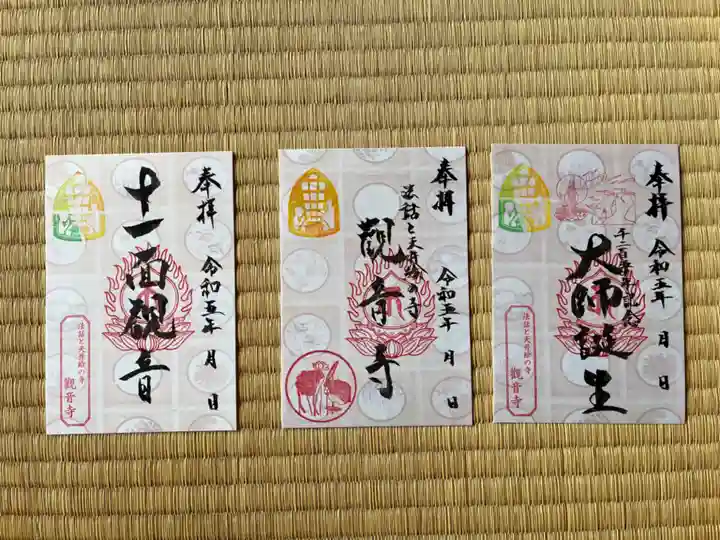 奉拝
十一面観音
令和五年 月 日
法話と天井絵の寺
観音寺
奉拝
法話と天井絵の寺
觀音寺
令和五年 月 日
奉拝
千二百五十年記念
大師誕生
令和五年 月 日
法話と天井絵の寺
観音寺